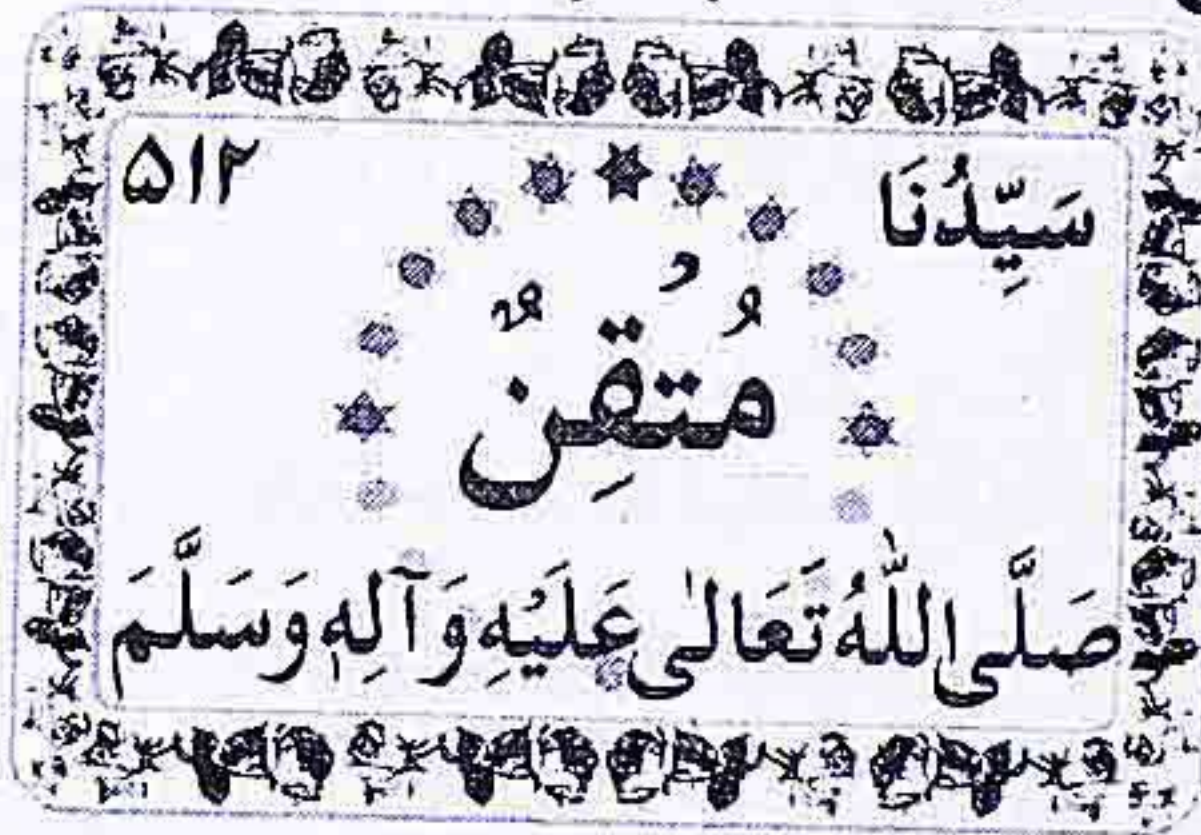 سَيِّدُنَا ۵۱۲
مُتْقِنٌ
صَلَّى اللّٰهُ تَعَالٰى عَلَيْهِ وَآلِهٖ وَسَلَّمَ